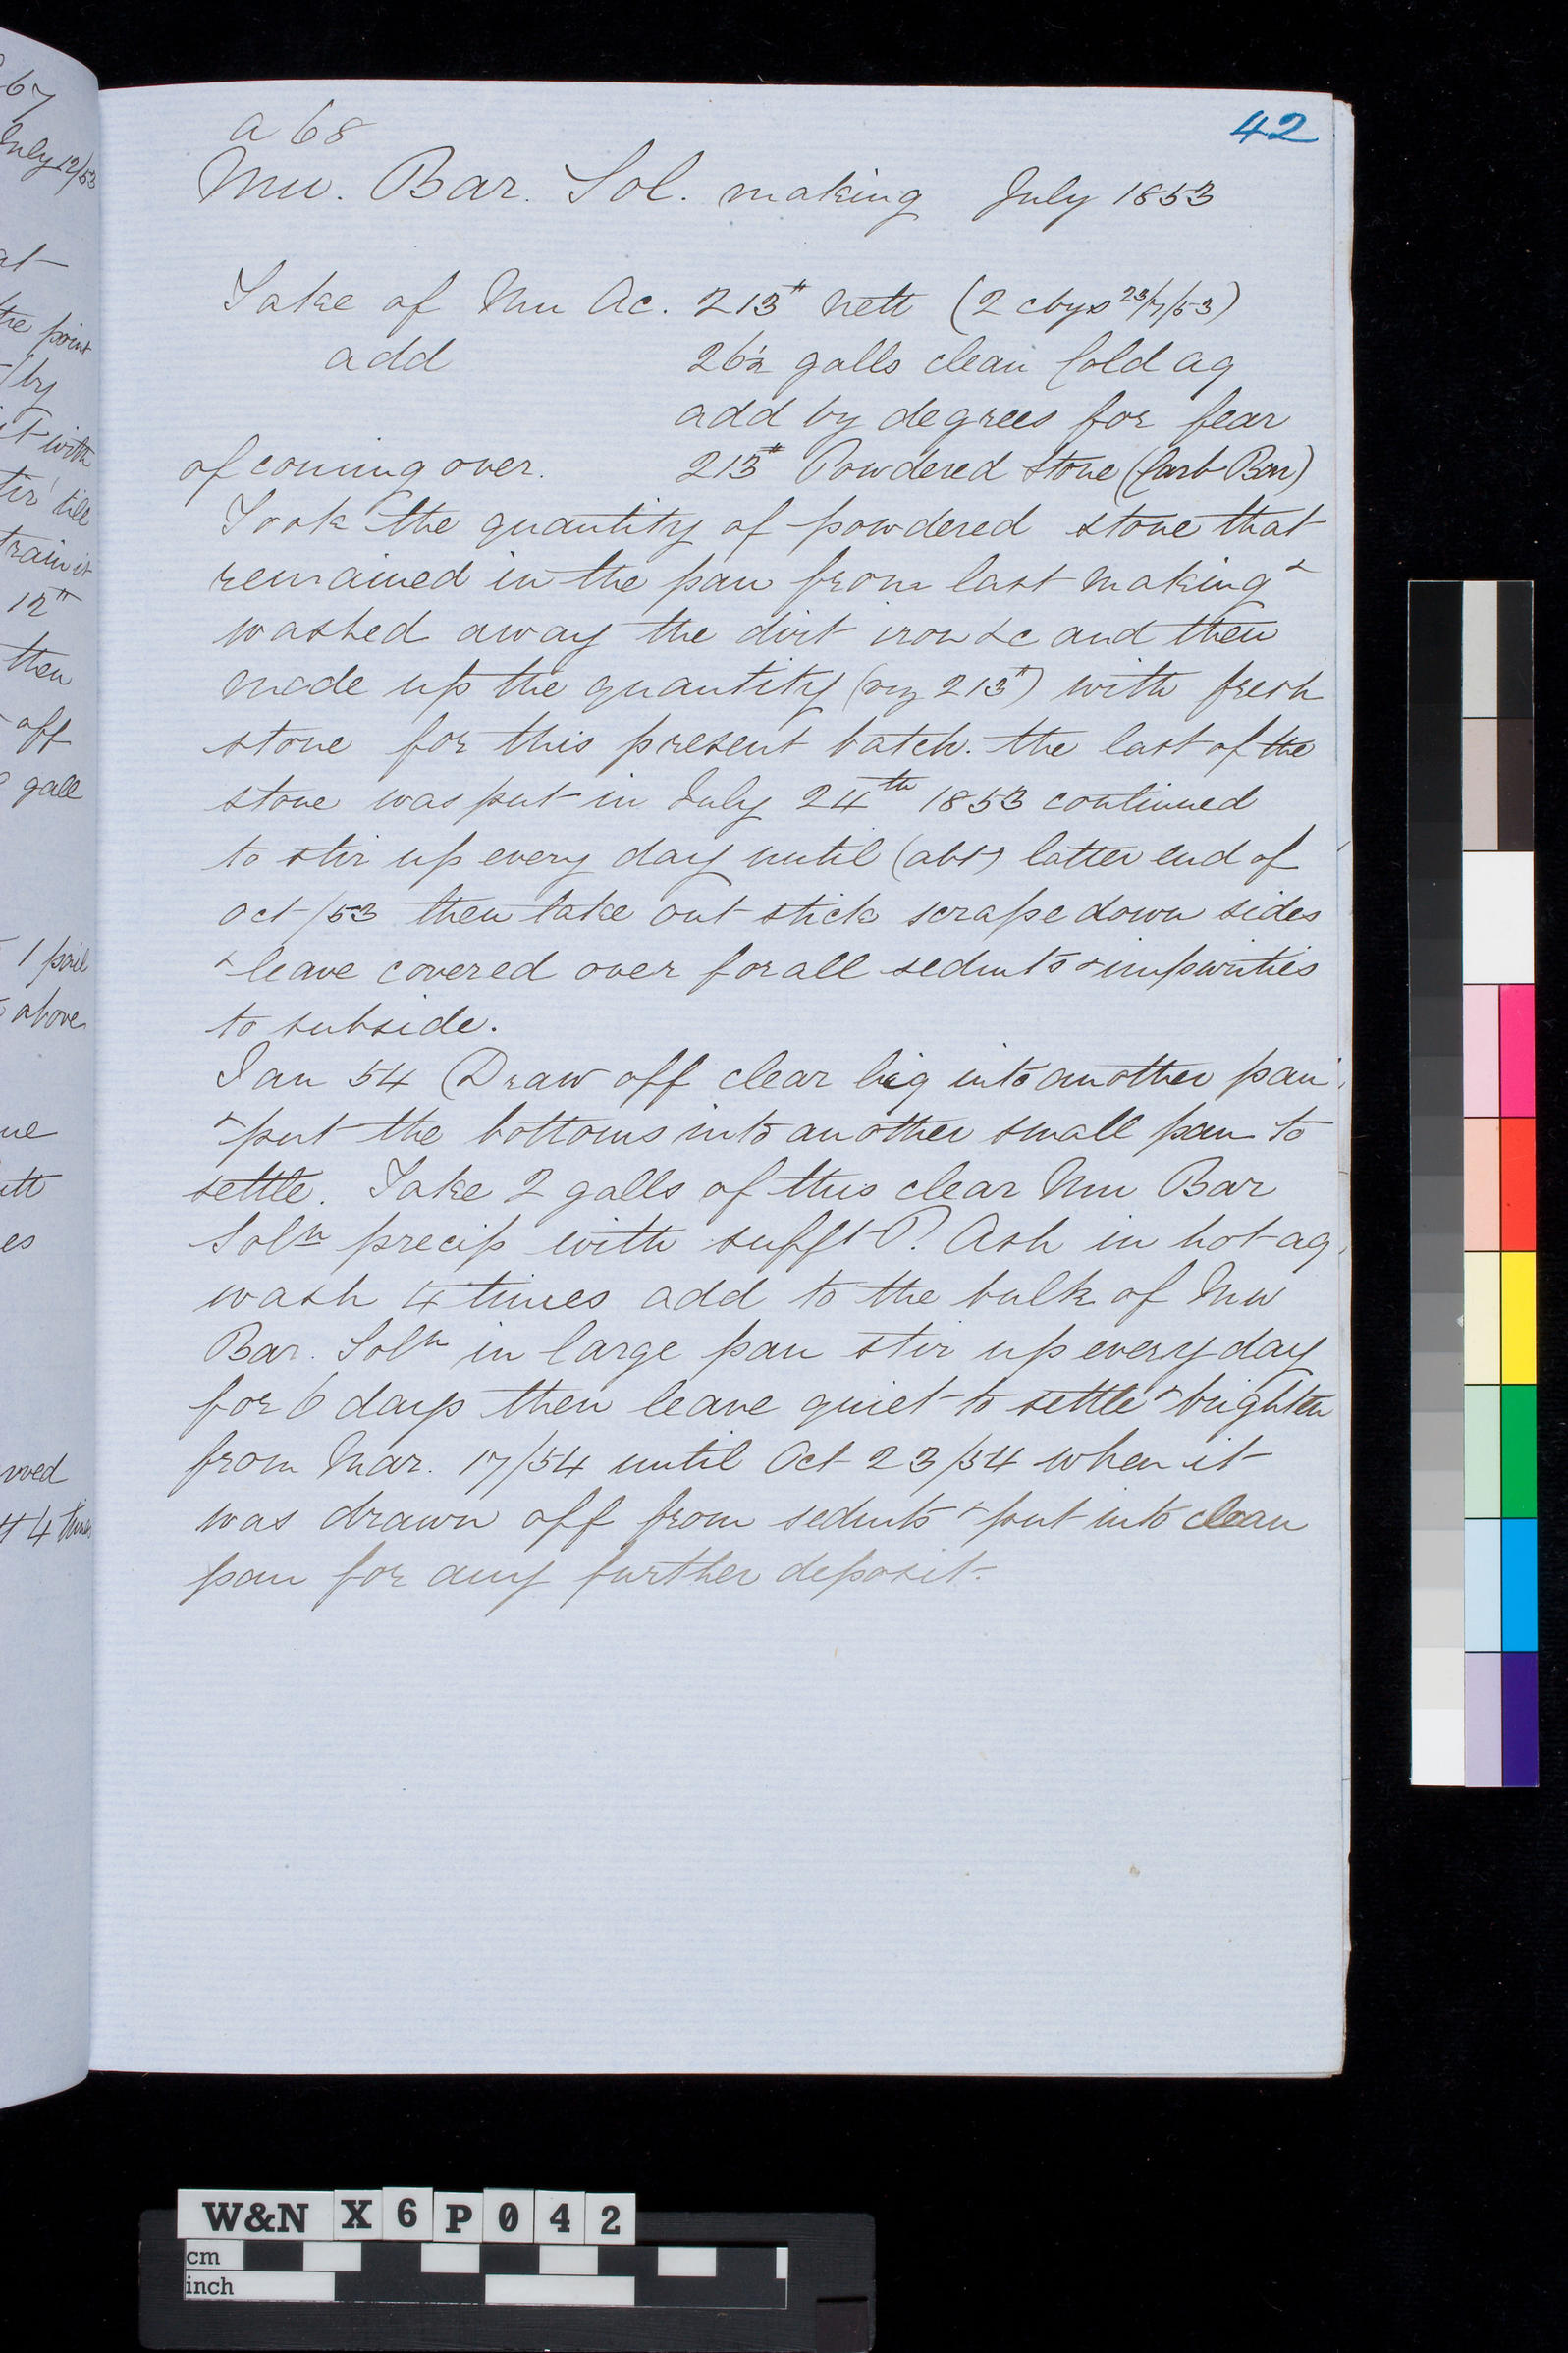 67
July 12/53
at
the point
by
it with
till
train it
12"
then
off
gall
1 pail
above
ue
es
4 times
a 68
42
Mu. Bar. Sol. making July 1853
Take of Mu Ac. 213# nett (2 cbys 23/7/53)
add 26½ galls clean Cold aq
add by degrees for fear
of coming over. 213# Powdered Stone (Carb Bar)
Took the quantity of powdered stone that
remained in the pan from last making &
washed away the dirt iron &c and then
made up the quantity (viz 213#) with fresh
stone for this present batch. the last of the
stone was put in July 24th 1853 continued
to stir up every day until (abt) latter end of
Oct/53 then take out stick scrape down sides
& leave covered over for all sedmts & impurities
to subside.
Jan 54 Draw off clear liq into another pan
& put the bottoms into another small pan to
settle. Take 2 galls of this clear Mu Bar
Soln precip with sufft P. Ash in hot aq.
wash 4 times add to the bulk of Mu
Bar. Soln in large pan stir up every day
for 6 days then leave quiet to settle & brighten
from Mar. 17/54 until Oct 23/54 when it
was drawn off from sedmts & put into clean
pan for any further deposit.
W&N X6P042
cm
inch